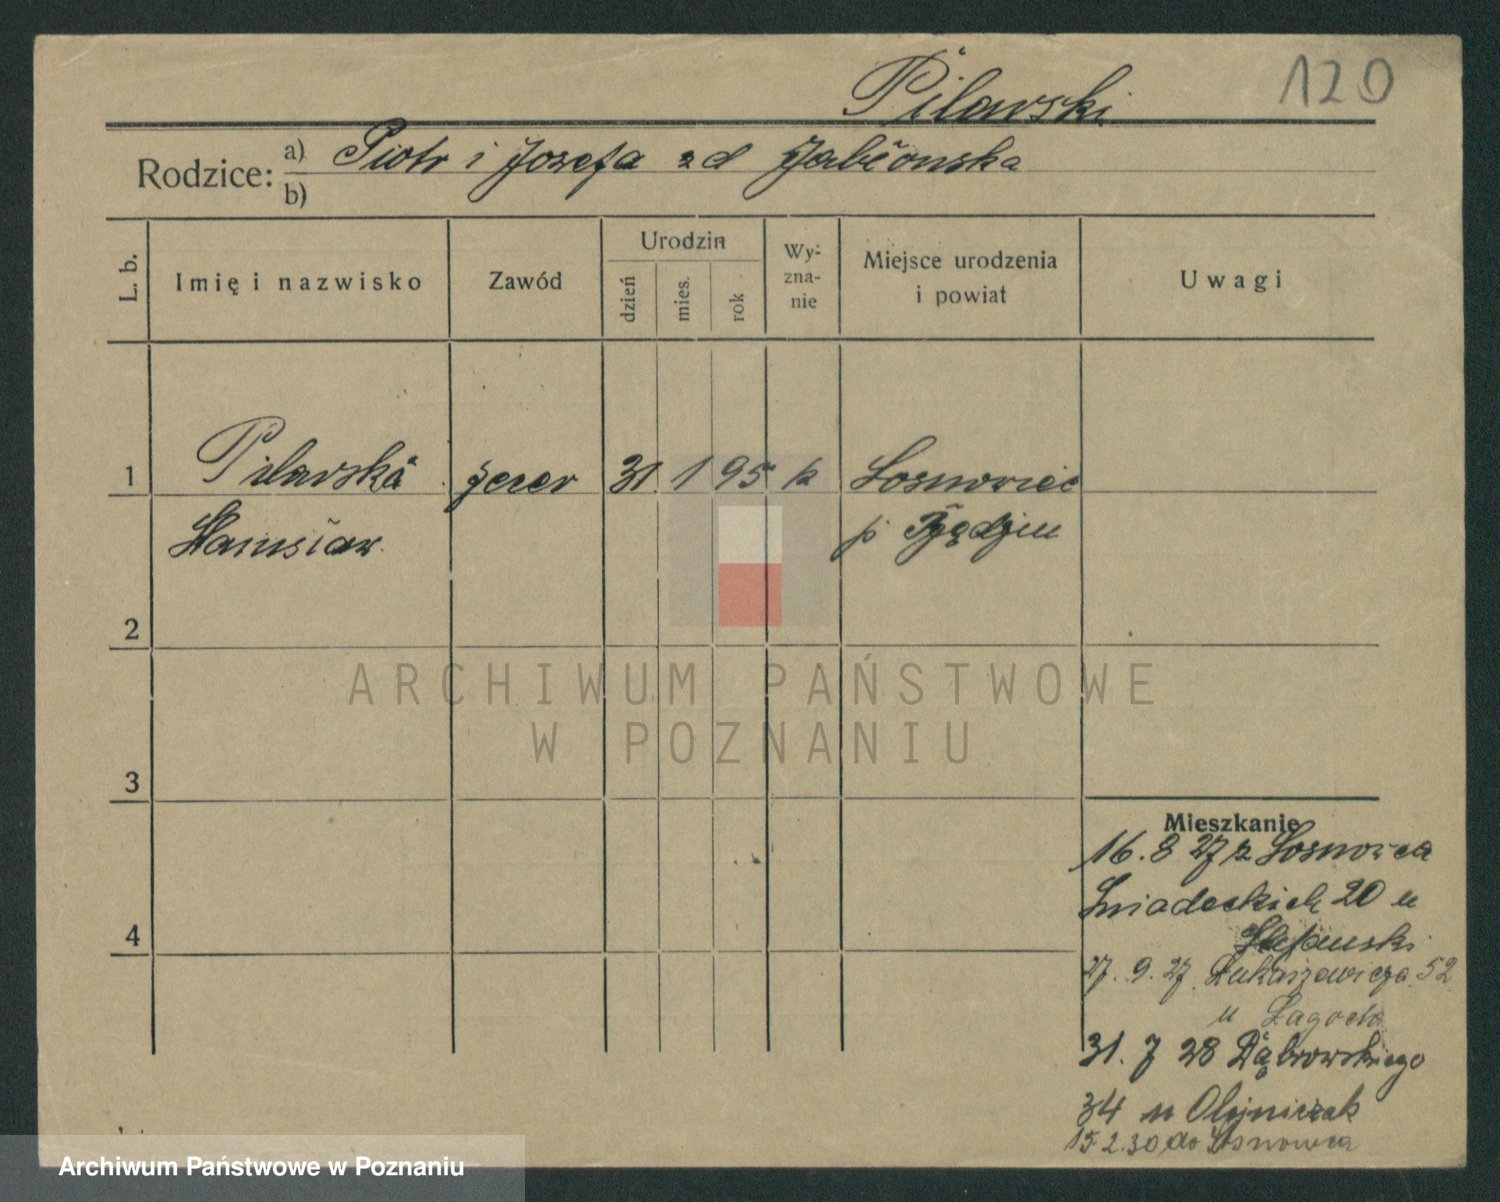 120
Pilawski
Rodzice: a) Piotr i Józefa zd Jabłonska
b)
L. b.
Imię i nazwisko
Zawód
Urodzin
dzień
mies.
rok
Wy-
zna-
nie
Miejsce urodzenia
i powiat
Uwagi
1
Pilawski
31 1 95 k Sosnowiec
Stanisław
p. Będzin
2
ARCHIWUM PAŃSTWOWE
W POZNANIU
3
Mieszkanie
16.8 27 z Sosnowca
Śniadeckich 20 u
4
27.9.27 Łukaszewicza 52
u
31.7 28 Dąbrowskiego
34 u Olejniczak
15.2.30 do Sosnowca
Archiwum Państwowe w Poznaniu